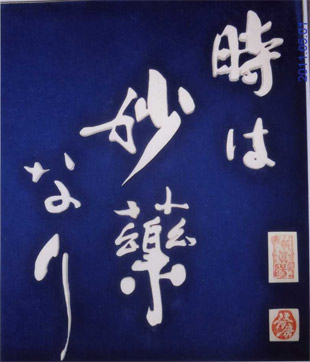 時は
妙薬
なり